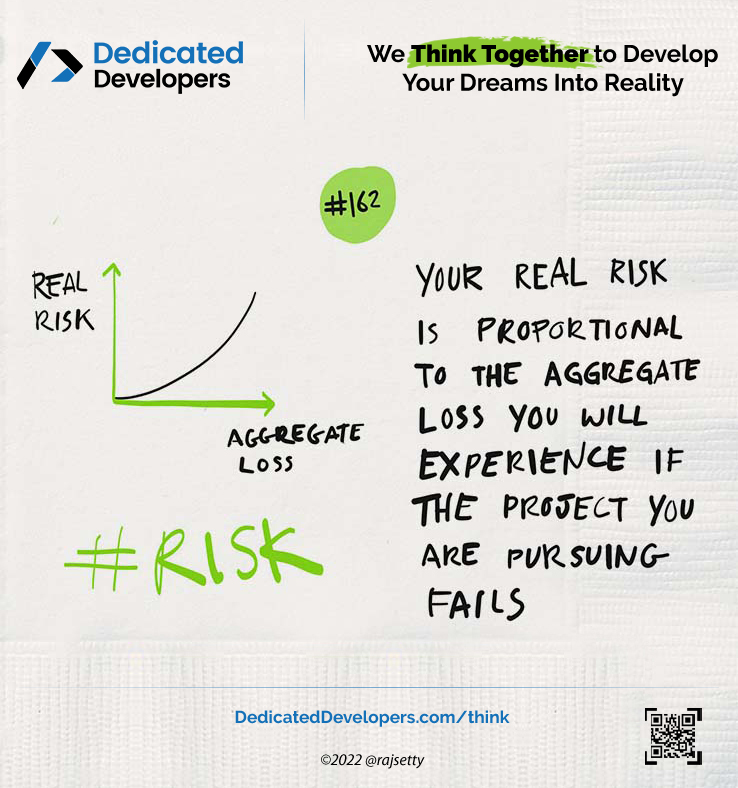 Dedicated
Developers
We Think Together to Develop
Your Dreams Into Reality
#162
REAL
RISK
AGGREGATE
LOSS
#RISK
YOUR REAL RISK
IS PROPORTIONAL
TO THE AGGREGATE
LOSS YOU WILL
EXPERIENCE IF
THE PROJECT YOU
ARE PURSUING
FAILS
DedicatedDevelopers.com/think
©2022 @rajsetty